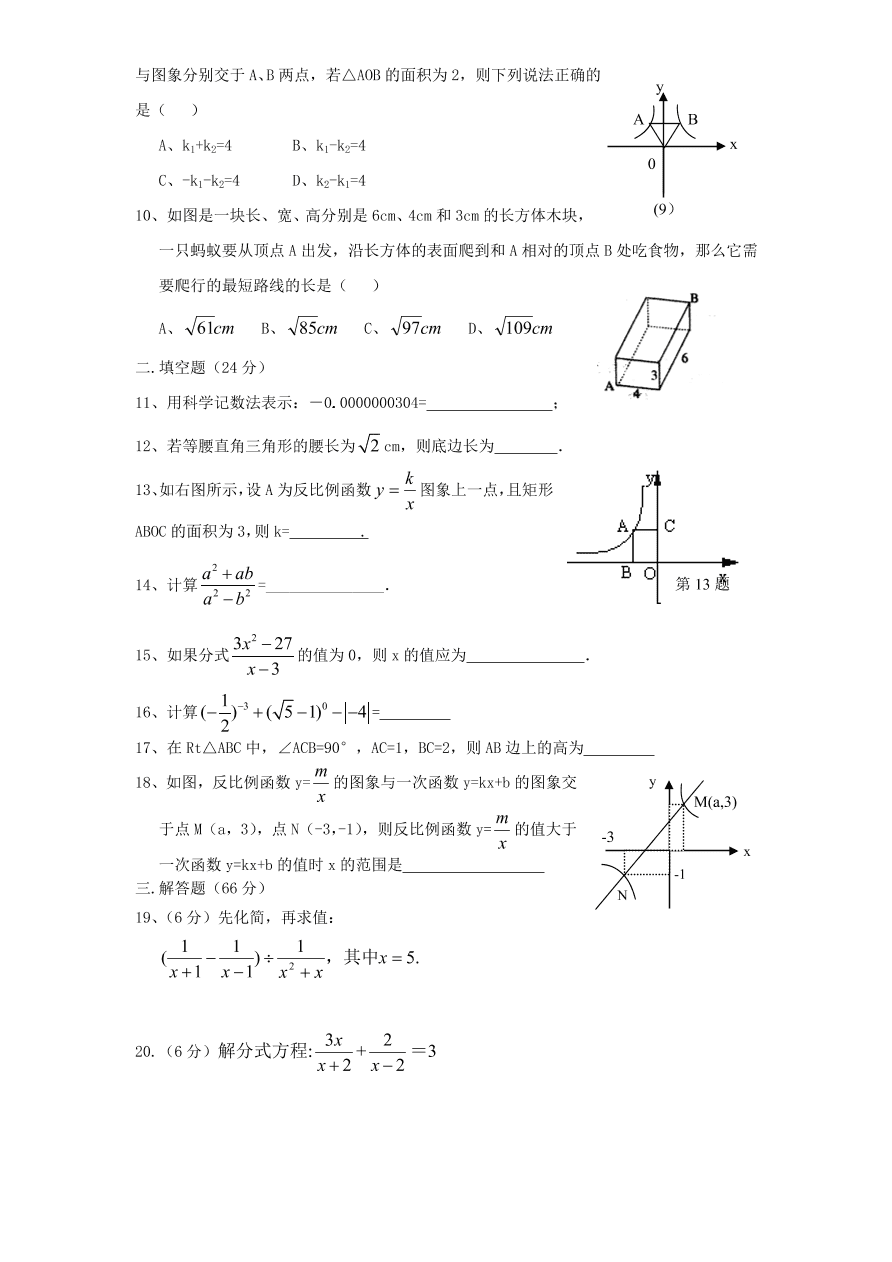 与图象分别交于 A、B 两点，若△AOB 的面积为 2，则下列说法正确的
是（　　）
A、k₁+k₂=4　　B、k₁-k₂=4
C、-k₁-k₂=4　　D、k₂-k₁=4
y
A B
x
0
(9）
10、如图是一块长、宽、高分别是 6cm、4cm 和 3cm 的长方体木块，
一只蚂蚁要从顶点 A 出发，沿长方体的表面爬到和 A 相对的顶点 B 处吃食物，那么它需
要爬行的最短路线的长是（　　）
A、√61cm　B、√85cm　C、√97cm　D、√109cm
B
6
3
A
4
二.填空题（24 分）
11、用科学记数法表示：－0.0000000304=________________；
12、若等腰直角三角形的腰长为 √2 cm，则底边长为________．
13、如右图所示，设 A 为反比例函数 y = k/x 图象上一点，且矩形
ABOC 的面积为 3，则 k=_________．
y
A C
B O x
第 13 题
14、计算 (a² + ab)/(a² − b²) =_______________．
15、如果分式 (3x² − 27)/(x − 3) 的值为 0，则 x 的值应为_______________．
16、计算 (−1/2)⁻³ + (√5 − 1)⁰ − |−4| =_________
17、在 Rt△ABC 中，∠ACB=90°，AC=1，BC=2，则 AB 边上的高为_________
18、如图，反比例函数 y=m/x 的图象与一次函数 y=kx+b 的图象交
于点 M（a，3），点 N（-3，-1），则反比例函数 y=m/x 的值大于
一次函数 y=kx+b 的值时 x 的范围是__________________
y
M(a,3)
-3
x
-1
N
三.解答题（66 分）
19、（6 分）先化简，再求值：
(1/(x+1) − 1/(x−1)) ÷ 1/(x² + x)，其中x = 5.
20.（6 分）解分式方程: 3x/(x+2) + 2/(x−2) ＝3